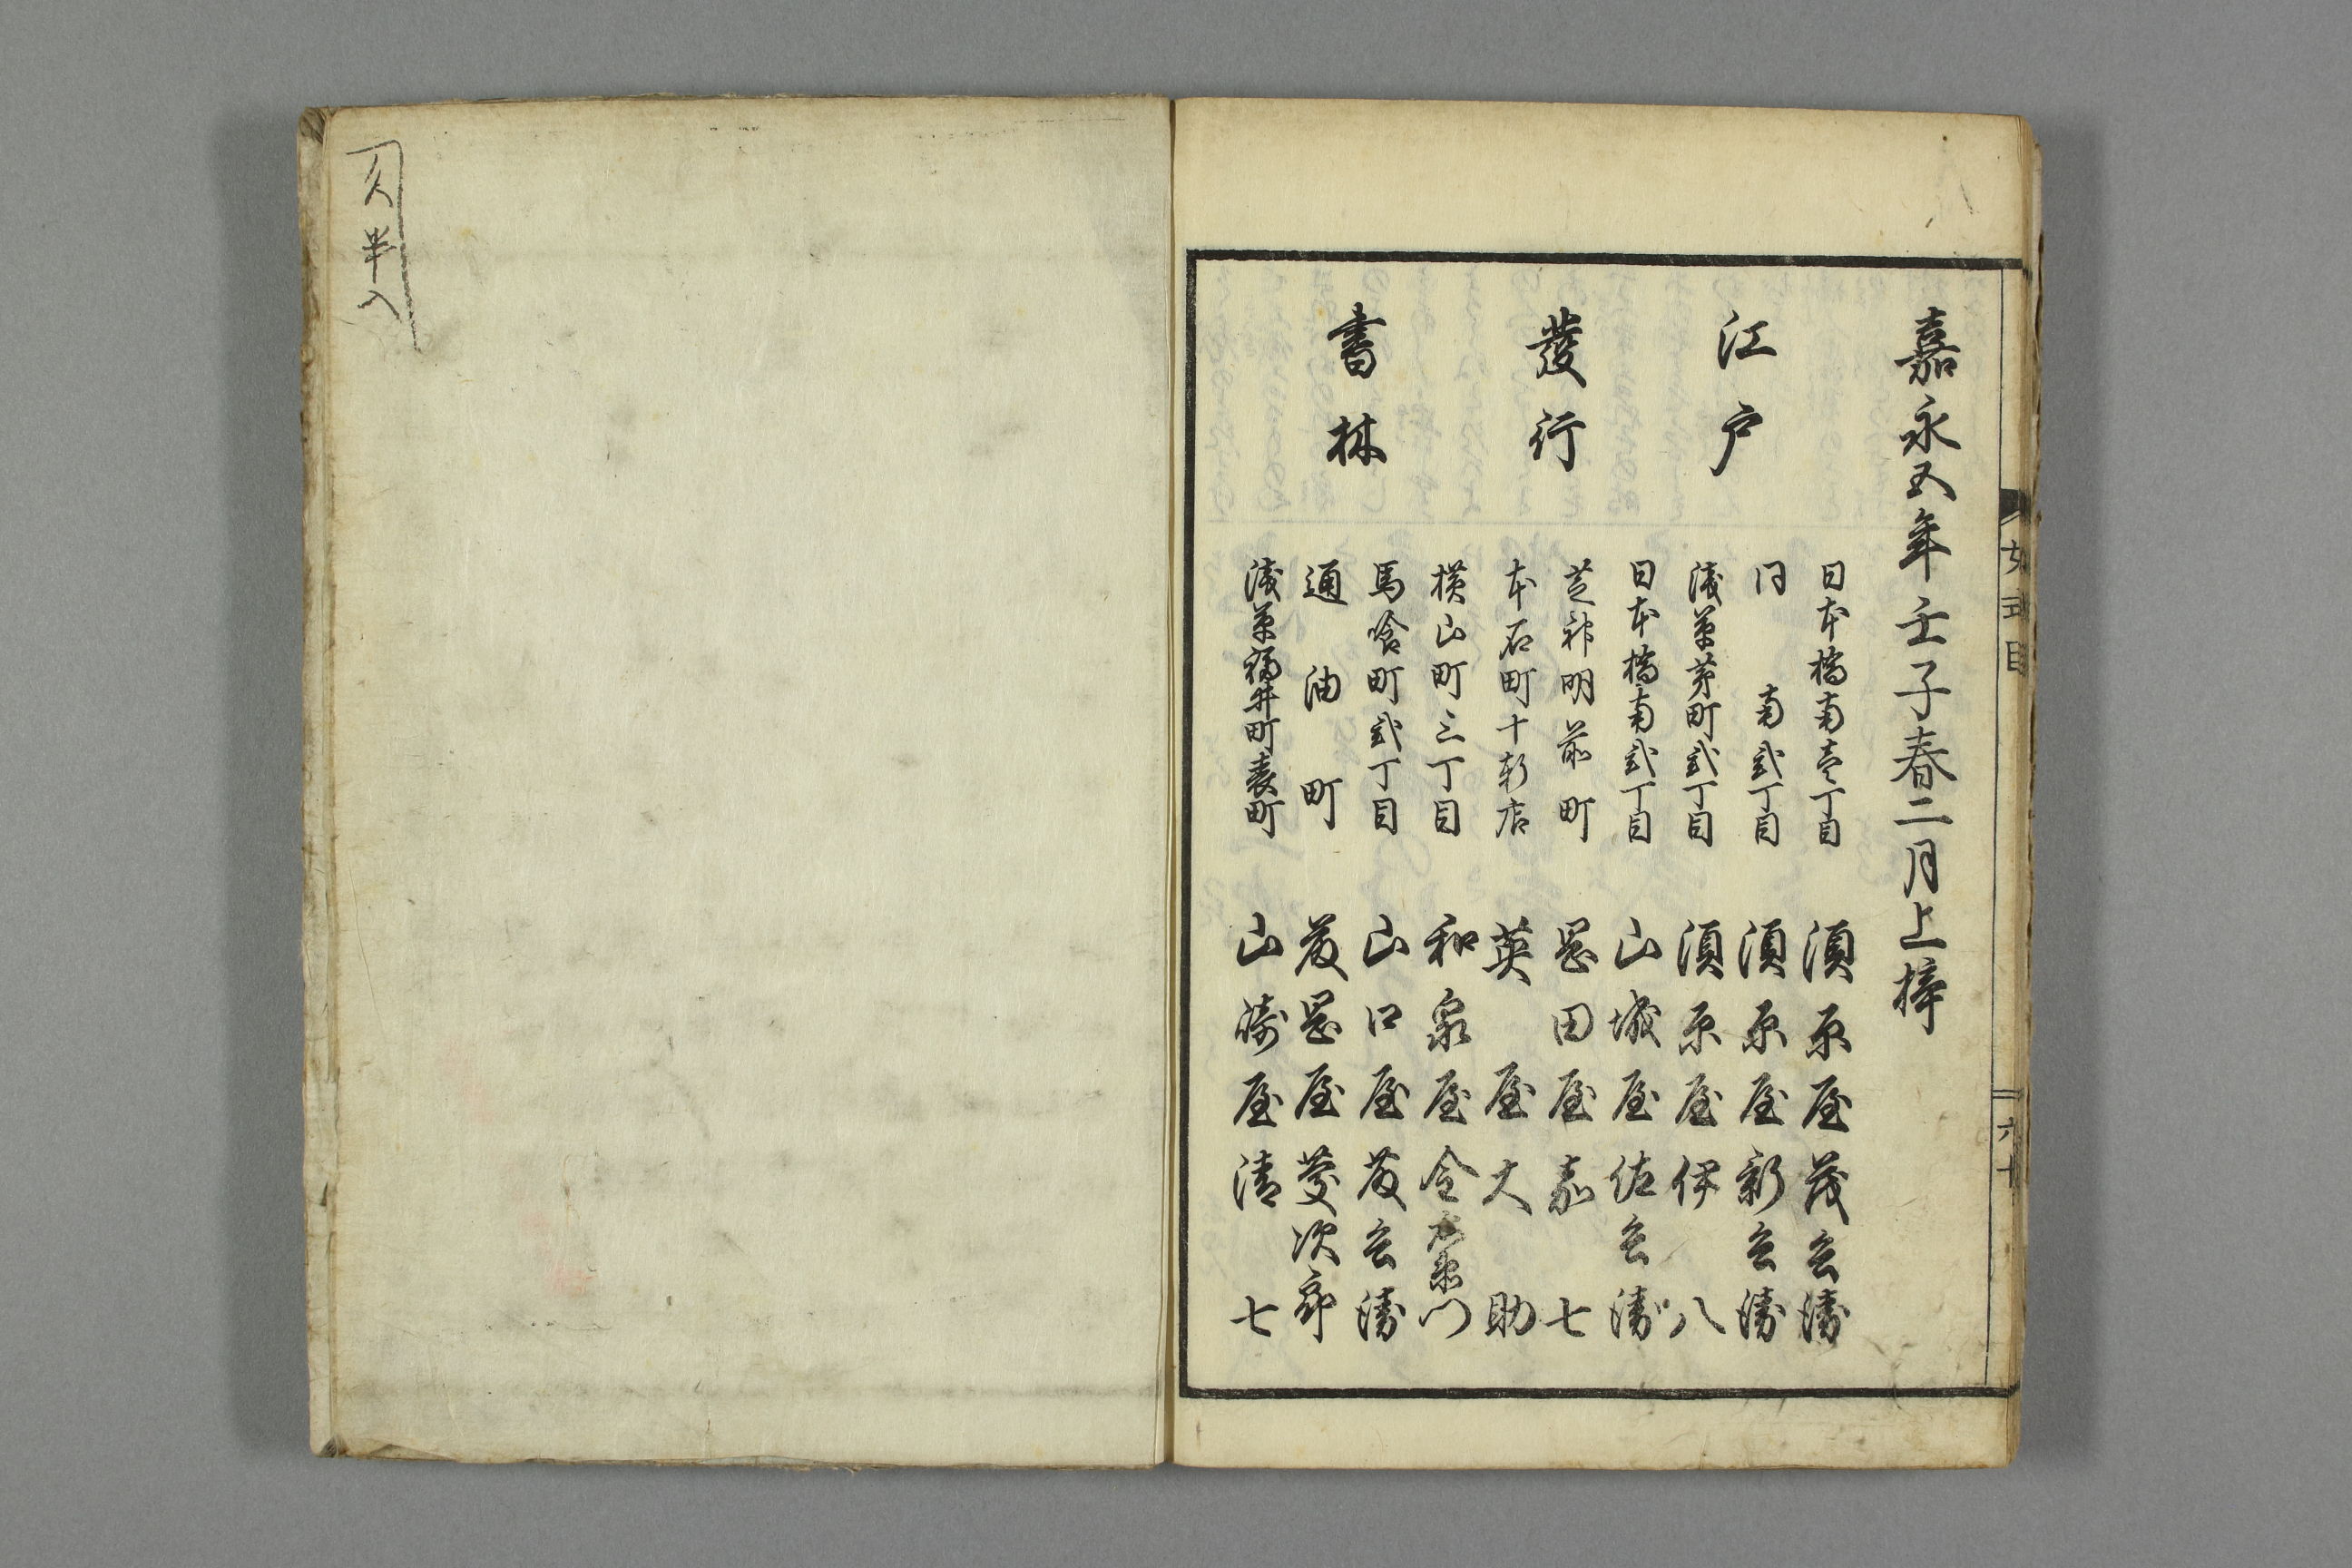 嘉永五年壬子春二月上梓
江戸
發行
書林
日本橋南壱丁目 須原屋茂兵衛
同 南弐丁目 須原屋新兵衛
浅草茅町弐丁目 須原屋伊八
日本橋南弐丁目 山城屋佐兵衛
芝神明前町 岡田屋嘉七
本石町十軒店 英屋大助
横山町三丁目 和泉屋金右衛門
馬喰町弐丁目 山口屋藤兵衛
通油町 藤岡屋慶次郎
浅草福井町表町 山崎屋清七
六十